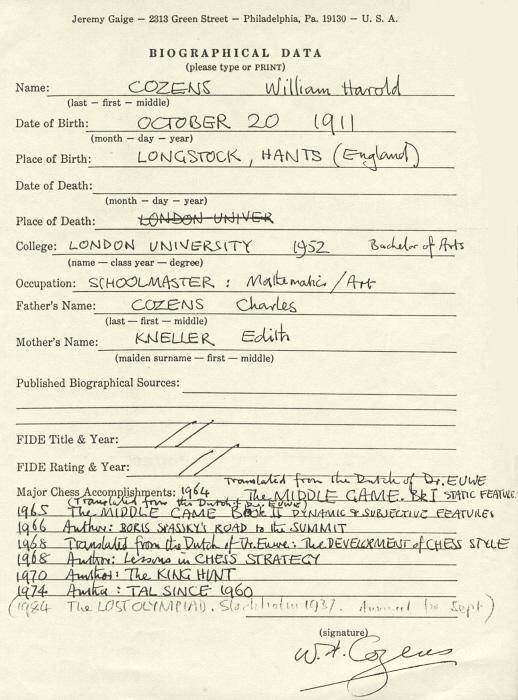 Jeremy Gaige — 2313 Green Street — Philadelphia, Pa. 19130 — U. S. A.
BIOGRAPHICAL DATA
(please type or PRINT)
Name: COZENS William Harold
(last — first — middle)
Date of Birth: OCTOBER 20 1911
(month — day — year)
Place of Birth: LONGSTOCK, HANTS (England)
Date of Death:
(month — day — year)
Place of Death: LONDON UNIVER
College: LONDON UNIVERSITY 1952 Bachelor of Arts
(name — class year — degree)
Occupation: SCHOOLMASTER : Mathematics / Art
Father's Name: COZENS Charles
(last — first — middle)
Mother's Name: KNELLER Edith
(maiden surname — first — middle)
Published Biographical Sources:
FIDE Title & Year: //
FIDE Rating & Year: //
Translated from the Dutch of Dr. EUWE
Major Chess Accomplishments: 1964 The MIDDLE GAME. Bk I STATIC FEATURES
(Translated from the Dutch of Dr. EUWE)
1965 The MIDDLE GAME Book II DYNAMIC & SUBJECTIVE FEATURES
1966 Author: BORIS SPASSKY'S ROAD to the SUMMIT
1968 Translated from the Dutch of Dr. Euwe: The DEVELOPMENT of CHESS STYLE
1968 Author: Lessons in CHESS STRATEGY
1970 Author: The KING HUNT
1974 Author: TAL SINCE 1960
(1984 The LOST OLYMPIAD. Stockholm 1937. Announced for Sept)
(signature)
W.H. Cozens